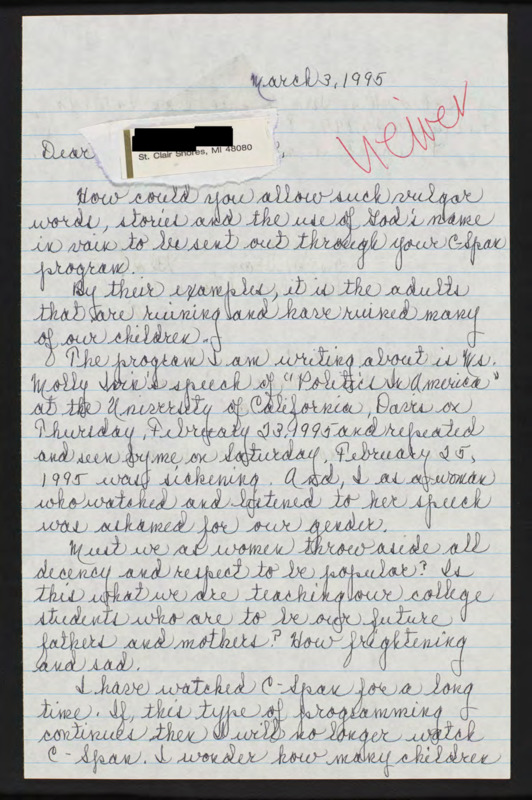 March 3, 1995
viewer
Dear
St. Clair Shores, MI 48080
,
How could you allow such vulgar
words, stories and the use of God's name
in vain to be sent out through your C-Span
program.
By their examples, it is the adults
that are ruining and have ruined many
of our children.
The program I am writing about is Ms.
Molly Ivin's speech of "Politics In America"
at the University of California, Davis on
Thursday, February 23, 1995 and repeated
and seen by me on Saturday, February 25,
1995 was sickening. And, I as a woman
who watched and listened to her speech
was ashamed for our gender.
Must we as women throw aside all
decency and respect to be popular? Is
this what we are teaching our college
students who are to be our future
fathers and mothers? How frightening
and sad.
I have watched C-Span for a long
time. If, this type of programming
continues then I will no longer watch
C-Span. I wonder how many children